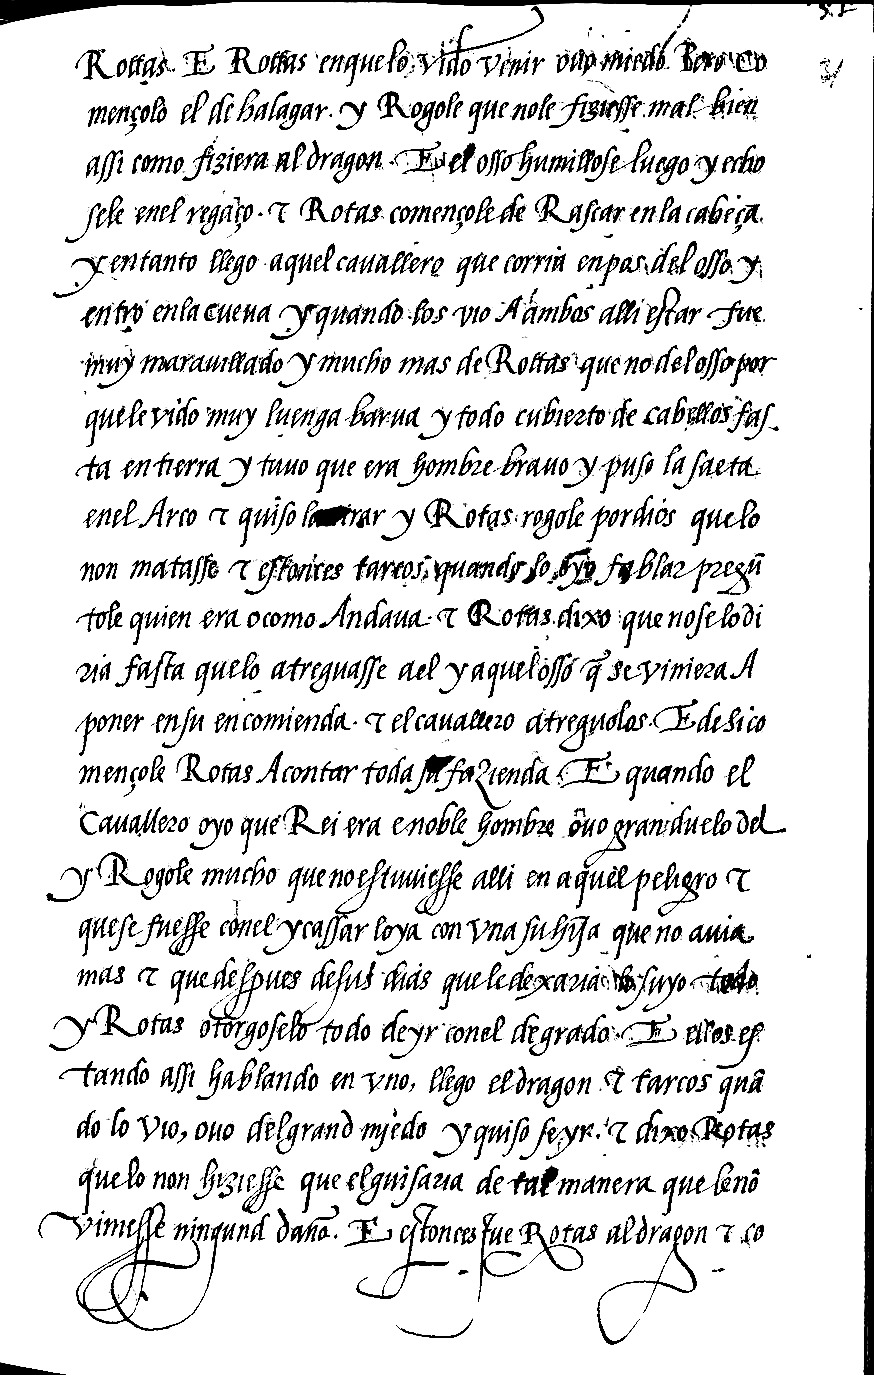 Rottas E Rottas enquelo vido venir ouo miedo. Pero co
mençolo el de halagar. y Rogole que nole fiziesse mal bien
assi como fiziera al dragon. E el osso humillose luego y echo
sele enel regaço. τ Rotas començole de Rascar en la cabeça.
y entanto llego aquel cauallero que corria enpos del osso y
entro en la cueua y quando los vio Aambos alli estar fue
muy marauillado y mucho mas de Rottas que no del osso por
que le vido muy luenga barua y todo cubierto de cabellos fas
ta en tierra y tuuo que era hombre brauo y puso la saeta
enel Arco τ quiso la tirar y Rotas rogole por dios que lo
non matasse τ estonces tarcos quando lo oyo fablar pregū
tole quien era o como Andaua. τ Rottas dixo que no se lo di
ria fasta que lo atreguasse a el y aquel osso q̃ se viniera A
poner en su encomienda. τ el cauallero atreguolos. E desi co
mençole Rotas Acontar toda su fazienda. E quando el
Cauallero oyo que Rei era e noble hombre ôuo gran duelo del
y Rogole mucho que no estuuiesse alli en aquel peligro τ
que se fuesse conel y cassar lo ya con vna su hija que no auia
mas τ que despues de sus dias que le dexaria lo suyo todo
y Rotas otorgoselo todo de yr conel de grado. E ellos es
tando assi hablando en vno, llego el dragon τ tarcos quā
do lo vio, ouo del grand miedo y quiso se yr. τ dixo Rotas
que lo non hiziesse que el guisaria de tal manera que le nō
viniesse ningund daño. E estonces fue Rotas al dragon τ co